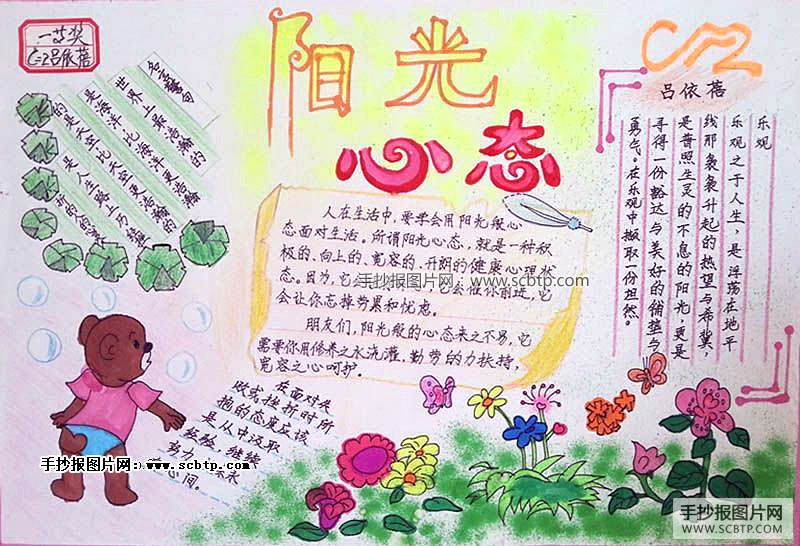 一等奖
C=2吕依蓓
阳光
心态
C52
吕依蓓
名言警句
世界上最浩瀚的
是海洋,比海洋更浩瀚
的是天空,比天空更浩瀚
的是人生路上历经
人在生活中,要学会用阳光般心
态面对生活。所谓阳光心态,就是一种积
极的、向上的、宽容的、开朗的健康心理状
态。因为,它会 它会催你前进,它
会让你忘掉劳累和忧虑。
朋友们,阳光般的心态来之不易,它
需要你用修养之水浇灌,勤劳的力扶持,
宽容之心呵护。
乐观
乐观之于人生，是浮荡在地平
线那袅袅升起的热望与希冀，
是普照生灵的不息的阳光，更是
寻得一份豁达与美好的铺垫与
勇气。在乐观中撷取一份坦然。
在面对失
败或挫折时所
抱的态度应该
是从中汲取
经验,继续
努力
心间。
手抄报图片网：www.scbtp.com
手抄报图片网：www.scbtp.com
手抄报图片网
WWW.SCBTP.COM